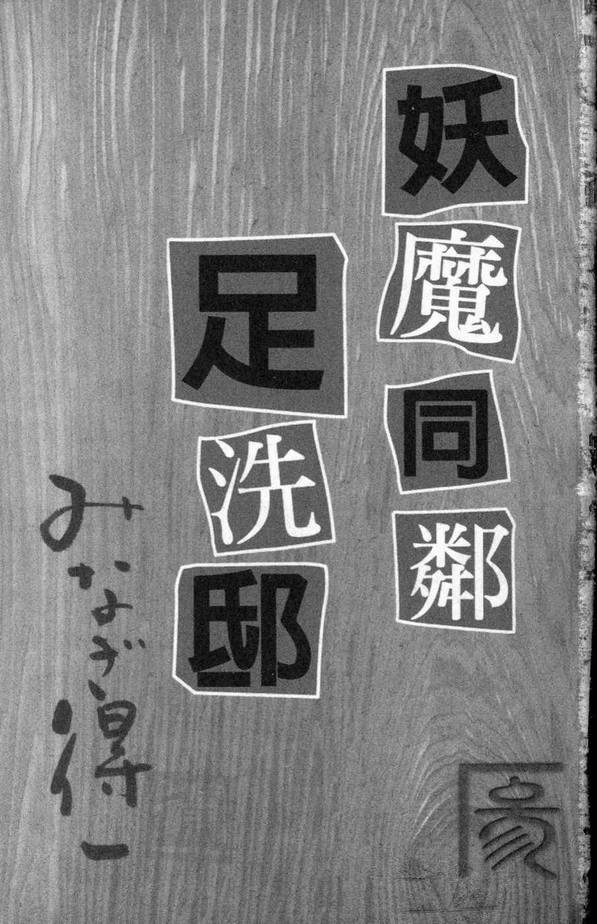 妖魔同鄰
足洗邸
みなぎ得一